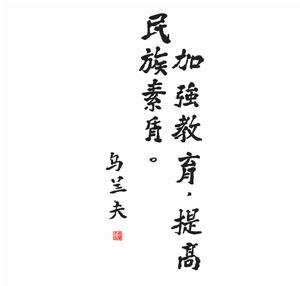 加強教育，提高
民族素质。
乌兰夫